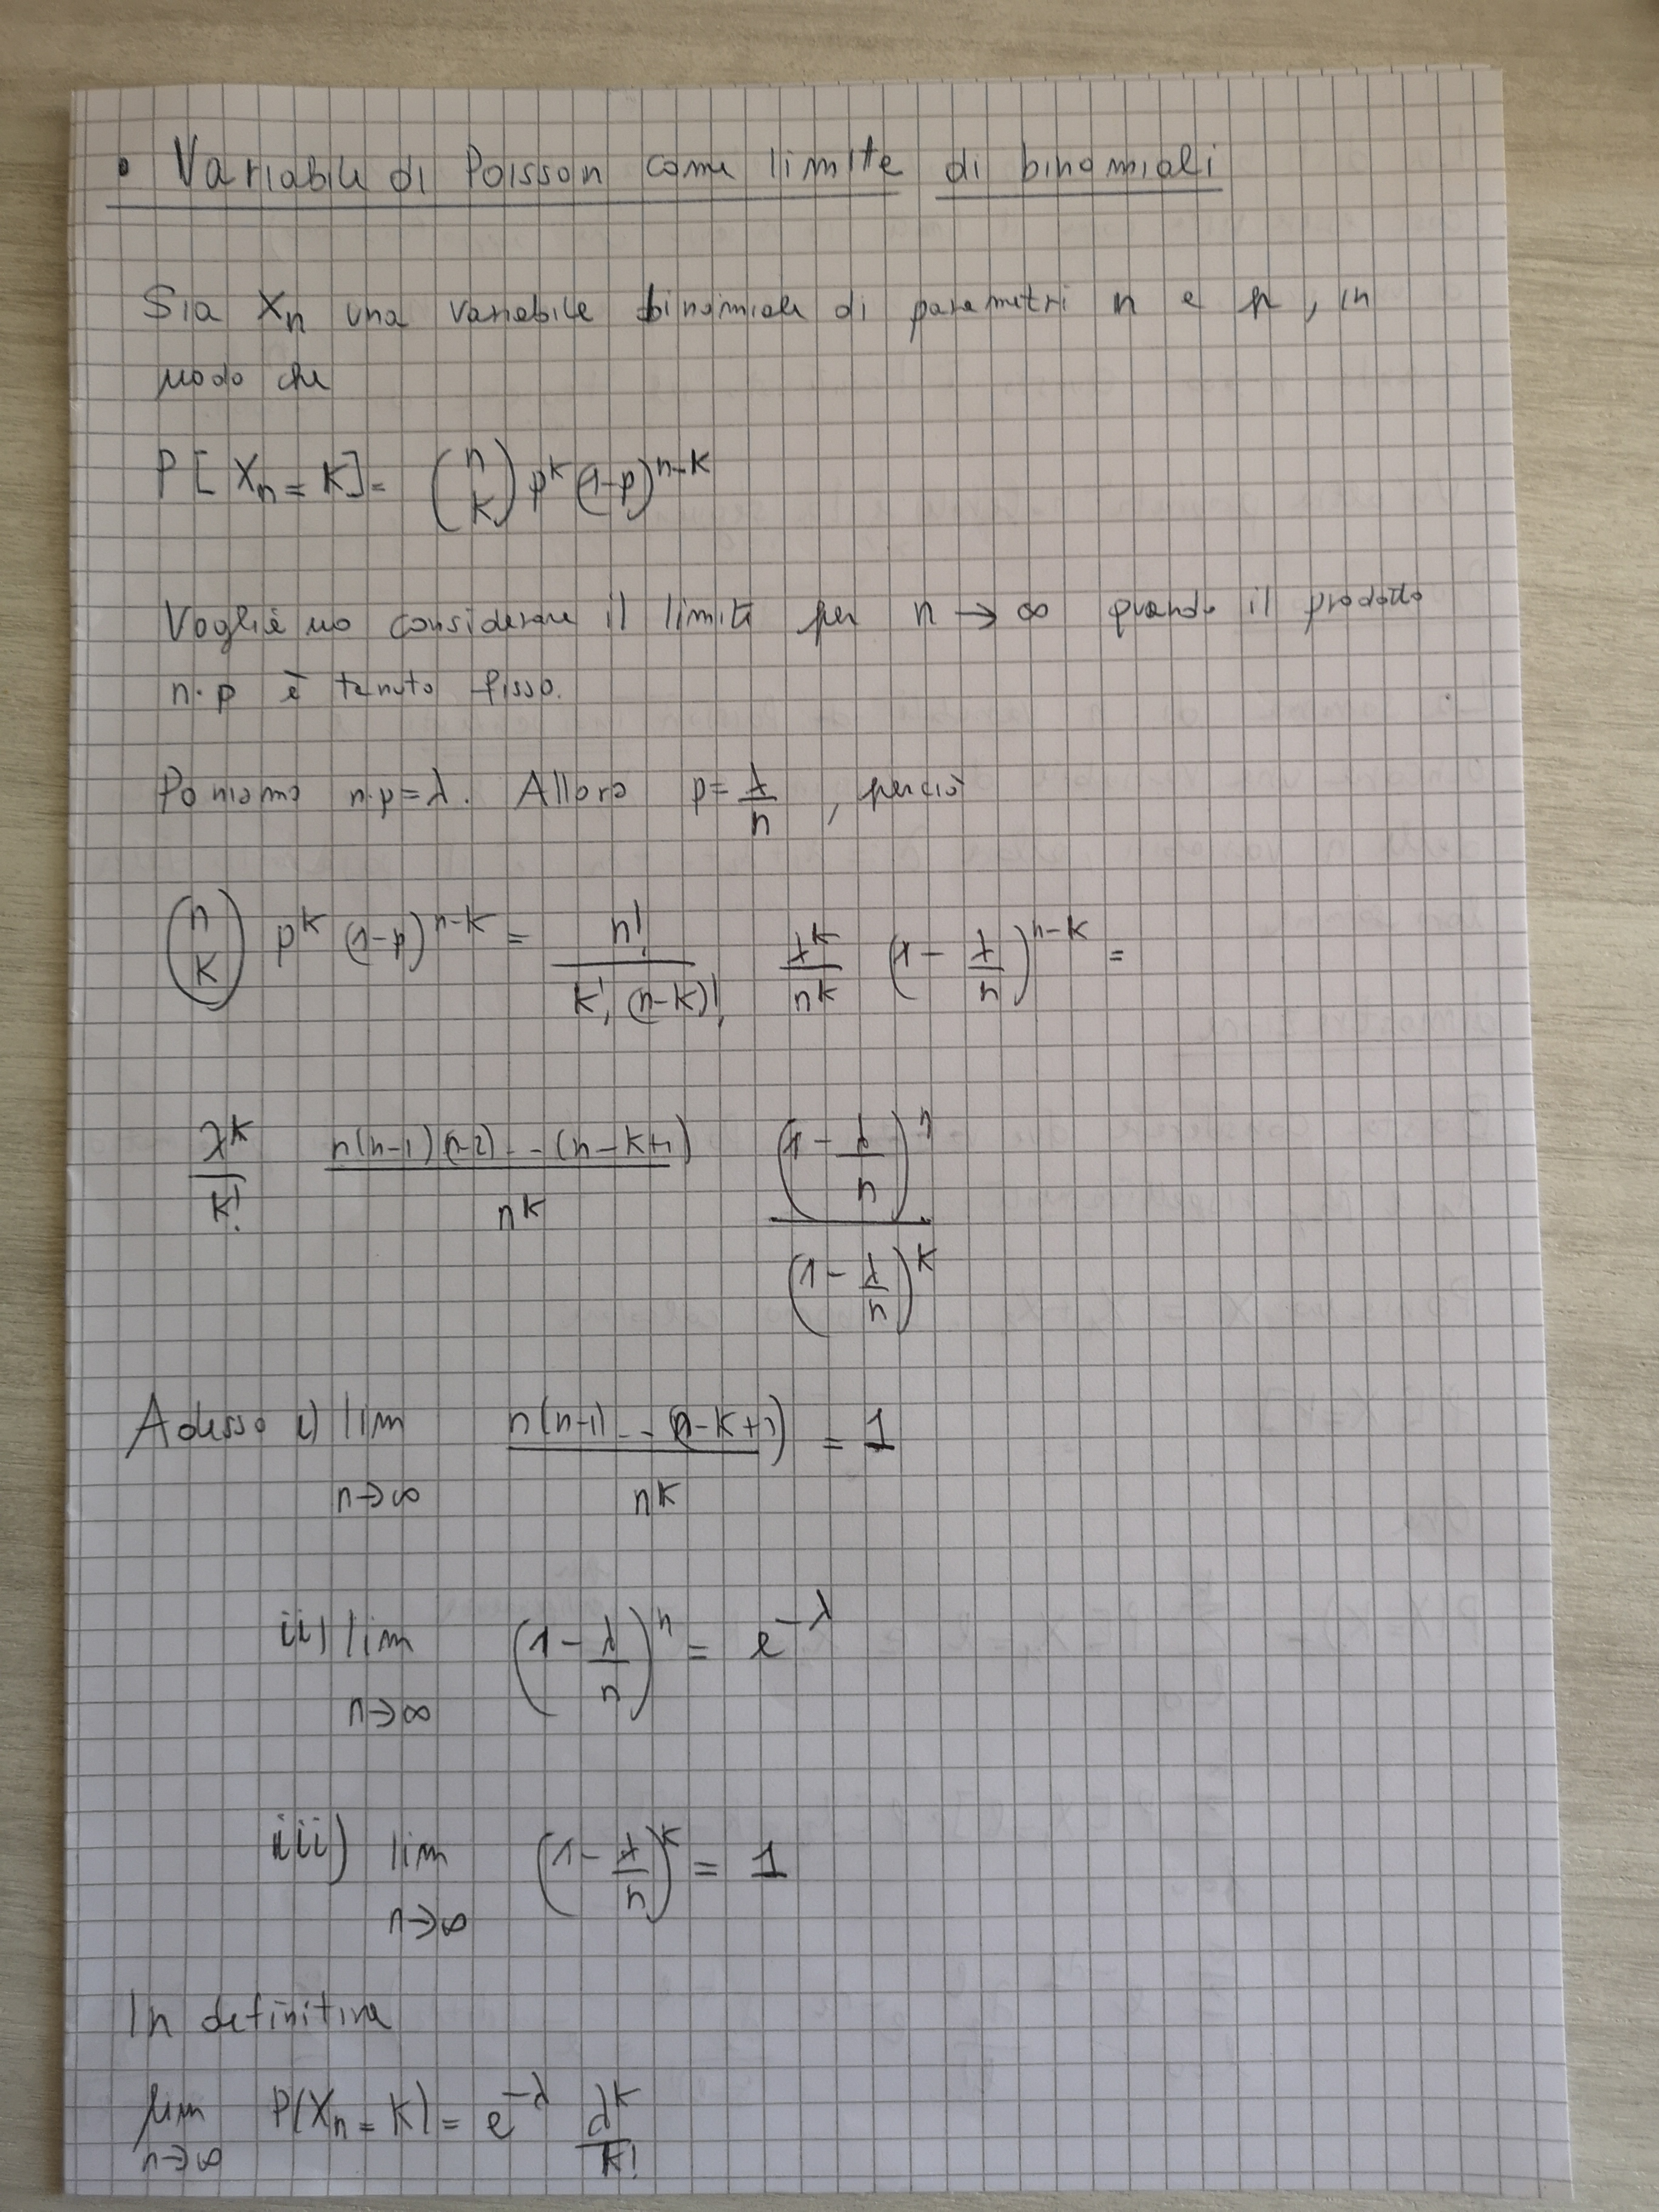 • Variabile di Poisson come limite di binomiali
Sia Xn una variabile binomiale di parametri n e p, in
modo che
P[Xn = K] = (n K) p^K (1-p)^(n-K)
Vogliamo considerare il limite per n → ∞ quando il prodotto
n·p è tenuto fisso.
Poniamo n·p = λ. Allora p = λ/n, perciò
(n K) p^K (1-p)^(n-K) = n!/(K! (n-K)!) λ^K/n^K (1 - λ/n)^(n-K) =
λ^K/K! n(n-1)(n-2)--(n-K+1)/n^K (1 - λ/n)^n/(1 - λ/n)^K
Adesso i) lim n→∞ n(n-1)--(n-K+1)/n^K = 1
ii) lim n→∞ (1 - λ/n)^n = e^-λ
iii) lim n→∞ (1 - λ/n)^K = 1
In definitiva
lim n→∞ P(Xn = K) = e^-λ λ^K/K!